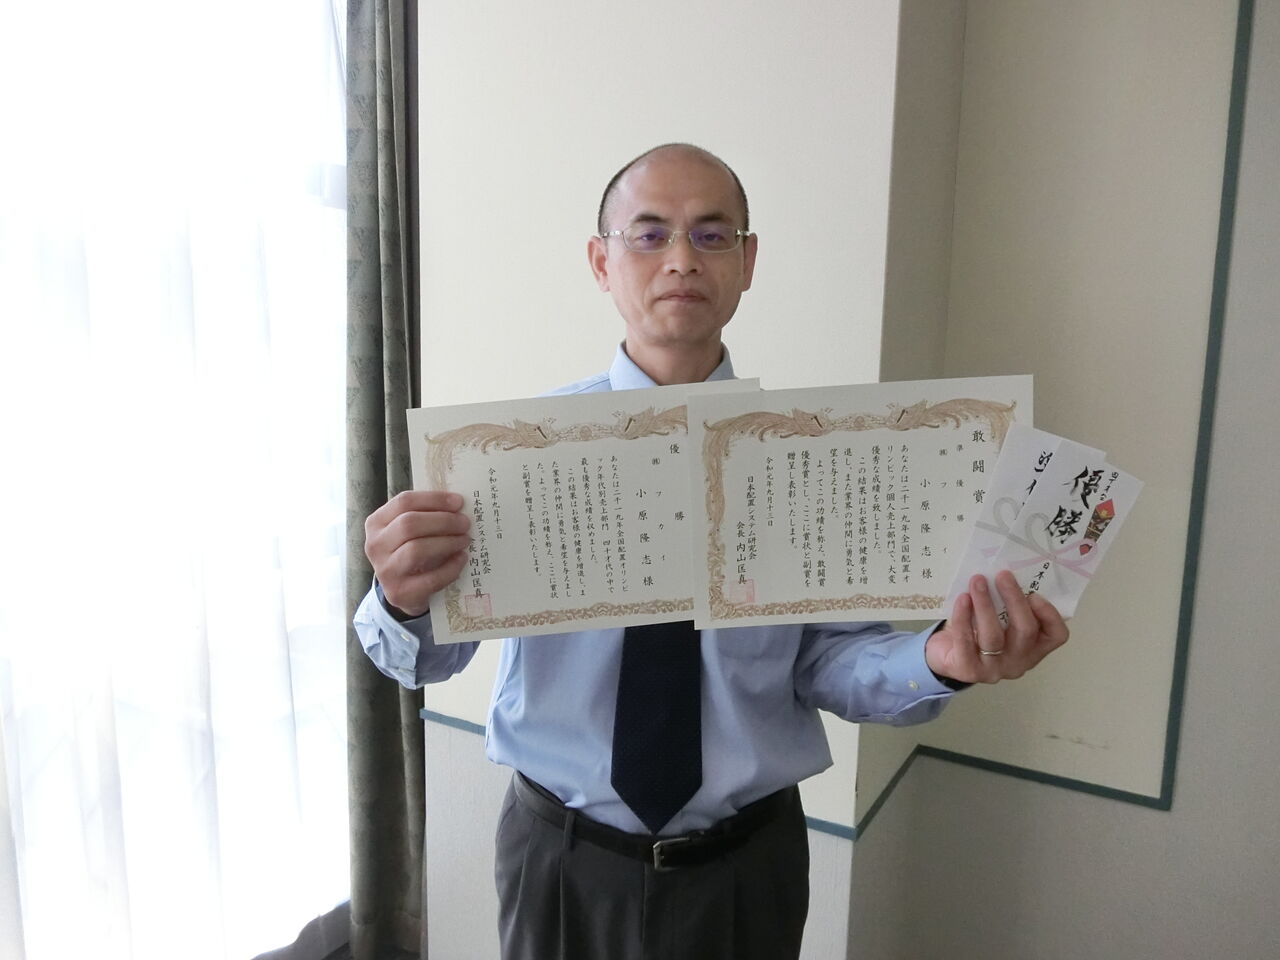 優勝
㈱フカイ
小原隆志様
あなたは二千一九年全国配置オリンピ
ック年代別売上部門　四十才代の中で
最も優秀な成績を収めました。
この結果はお客様の健康を増進し、ま
た業界の仲間に勇気と希望を与えまし
た。よってこの功績を称え、ここに賞状
と副賞を贈呈し表彰いたします。
令和元年九月十三日
日本配置システム研究会
会長　内山匡真
敢闘賞
準優勝
㈱フカイ
小原隆志様
あなたは二千一九年全国配置オ
リンピック個人売上部門で、大変
優秀な成績を致しました。
この結果はお客様の健康を増
進し、また業界の仲間に勇気と希
望を与えました。
よってこの功績を称え、敢闘賞
優秀賞とし、ここに賞状と副賞を
贈呈し表彰いたします。
令和元年九月十三日
日本配置システム研究会
会長　内山匡真
優勝
日本配